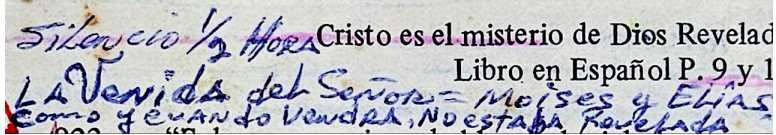 Silencio 1/2 Hora Cristo es el misterio de Dios Revelad
Libro en Español P. 9 y 1
LA Venida del Señor = Moises y Elías
como y cuando vendra, No estaba Revelada